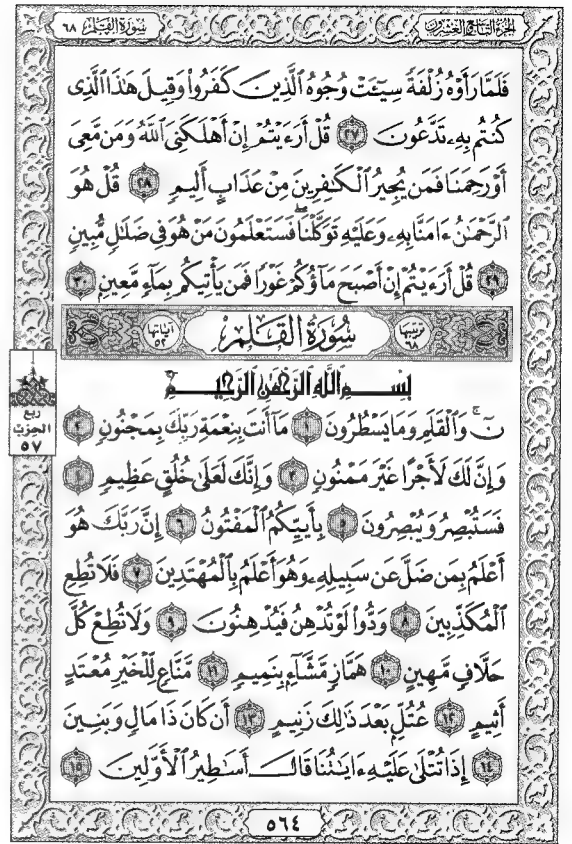 سُورَةُ القَلَمِ ٦٨
الجُزءُ التَّاسِعُ وَالعِشْرُونَ
فَلَمَّا رَأَوْهُ زُلْفَةً سِيٓـَٔتْ وُجُوهُ ٱلَّذِينَ كَفَرُوا۟ وَقِيلَ هَٰذَا ٱلَّذِى
كُنتُم بِهِۦ تَدَّعُونَ ٢٧ قُلْ أَرَءَيْتُمْ إِنْ أَهْلَكَنِىَ ٱللَّهُ وَمَن مَّعِىَ
أَوْ رَحِمَنَا فَمَن يُجِيرُ ٱلْكَٰفِرِينَ مِنْ عَذَابٍ أَلِيمٍ ٢٨ قُلْ هُوَ
ٱلرَّحْمَٰنُ ءَامَنَّا بِهِۦ وَعَلَيْهِ تَوَكَّلْنَا ۖ فَسَتَعْلَمُونَ مَنْ هُوَ فِى ضَلَٰلٍ مُّبِينٍ
٢٩ قُلْ أَرَءَيْتُمْ إِنْ أَصْبَحَ مَآؤُكُمْ غَوْرًا فَمَن يَأْتِيكُم بِمَآءٍ مَّعِينٍۭ ٣٠
ترتيبها ٦٨ سُورَةُ القَلَمِ آياتها ٥٢
بِسْمِ ٱللَّهِ ٱلرَّحْمَٰنِ ٱلرَّحِيمِ
نٓ ۚ وَٱلْقَلَمِ وَمَا يَسْطُرُونَ ١ مَآ أَنتَ بِنِعْمَةِ رَبِّكَ بِمَجْنُونٍ ٢
وَإِنَّ لَكَ لَأَجْرًا غَيْرَ مَمْنُونٍ ٣ وَإِنَّكَ لَعَلَىٰ خُلُقٍ عَظِيمٍ ٤
فَسَتُبْصِرُ وَيُبْصِرُونَ ٥ بِأَييِّكُمُ ٱلْمَفْتُونُ ٦ إِنَّ رَبَّكَ هُوَ
أَعْلَمُ بِمَن ضَلَّ عَن سَبِيلِهِۦ وَهُوَ أَعْلَمُ بِٱلْمُهْتَدِينَ ٧ فَلَا تُطِعِ
ٱلْمُكَذِّبِينَ ٨ وَدُّوا۟ لَوْ تُدْهِنُ فَيُدْهِنُونَ ٩ وَلَا تُطِعْ كُلَّ
حَلَّافٍ مَّهِينٍ ١٠ هَمَّازٍ مَّشَّآءٍۭ بِنَمِيمٍ ١١ مَّنَّاعٍ لِّلْخَيْرِ مُعْتَدٍ
أَثِيمٍ ١٢ عُتُلٍّۭ بَعْدَ ذَٰلِكَ زَنِيمٍ ١٣ أَن كَانَ ذَا مَالٍ وَبَنِينَ
١٤ إِذَا تُتْلَىٰ عَلَيْهِ ءَايَٰتُنَا قَالَ أَسَٰطِيرُ ٱلْأَوَّلِينَ ١٥
ربع
الحزب
٥٧
٥٦٤